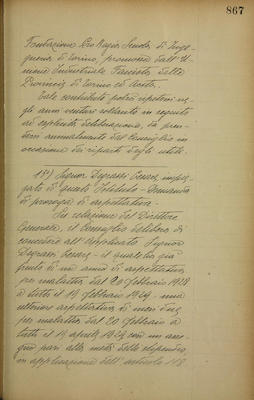 867
Fondazione Pro Regia Scuola di Inge-
gneria di Torino, promossa dall'U-
nione Industriale Fascista della
Provincia di Torino ed Aosta.
Tale contributo potrà ripetersi ne-
gli anni venturi soltanto in seguito
ad esplicita deliberazione, da pren-
dersi annualmente dal Consiglio in
occasione dei riparti degli utili.
18°) Signor Degrassi Cesare, impie-
gato di questo Istituto - Domanda
di proroga di aspettativa.
Su relazione del Direttore
Generale, il Consiglio delibera di
concedere all'applicato Signor
Degrassi Cesare - il quale ha già
fruito di un anno di aspettativa
per malattia dal 20 febbraio 1928
a tutto il 19 febbraio 1929 - una
ulteriore aspettativa di mesi due
per malattia dal 20 febbraio a
tutto il 19 aprile 1929 con un asse-
gno pari alla metà dello stipendio,
in applicazione dell'articolo 118